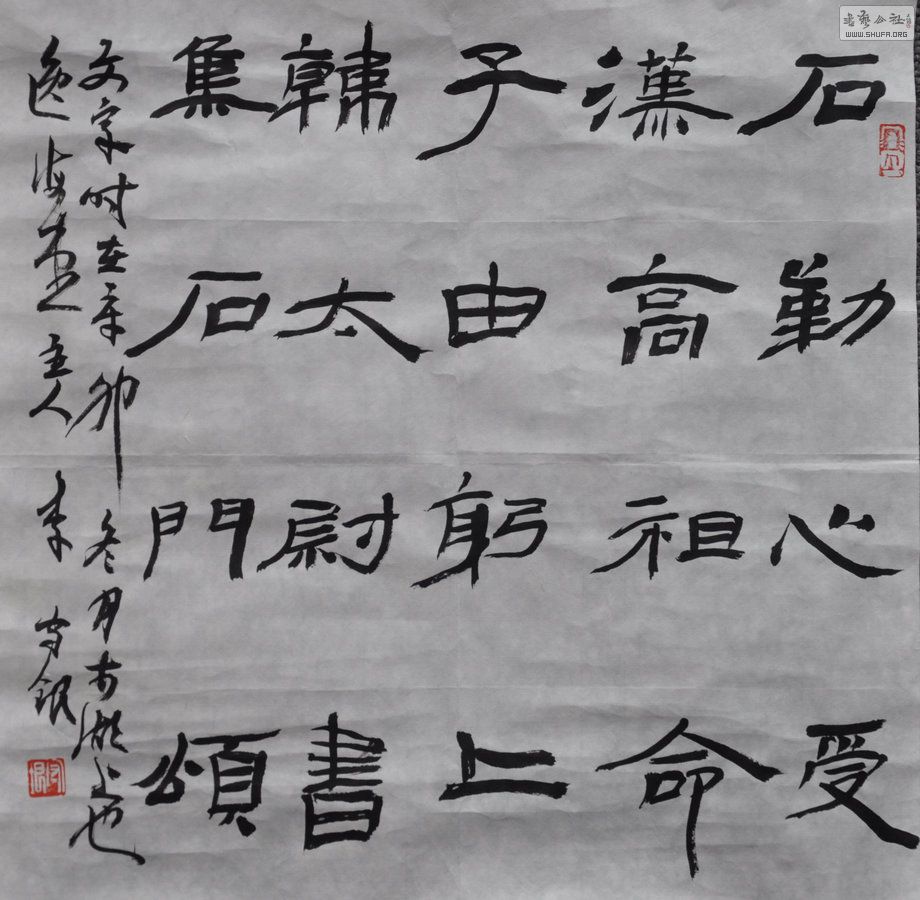 書藝公社
WWW.SHUFA.ORG
石勤心受
漢高祖命
子由躬上
韓太尉書
集石門頌
文字时在辛卯冬月湖上也
逸海主人李守銀